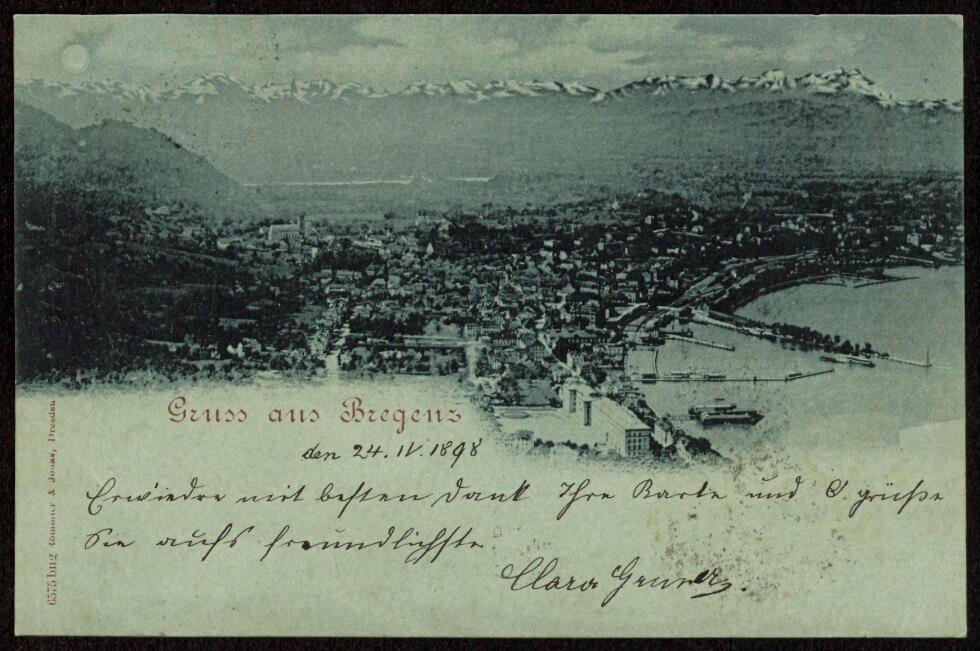 Gruss aus Bregenz
den 24. IV. 1898
Erwiedre mit besten Dank Ihre Karte und grüße
Sie aufs freundlichste
Clara
6575 bng & Jonas, Dresden